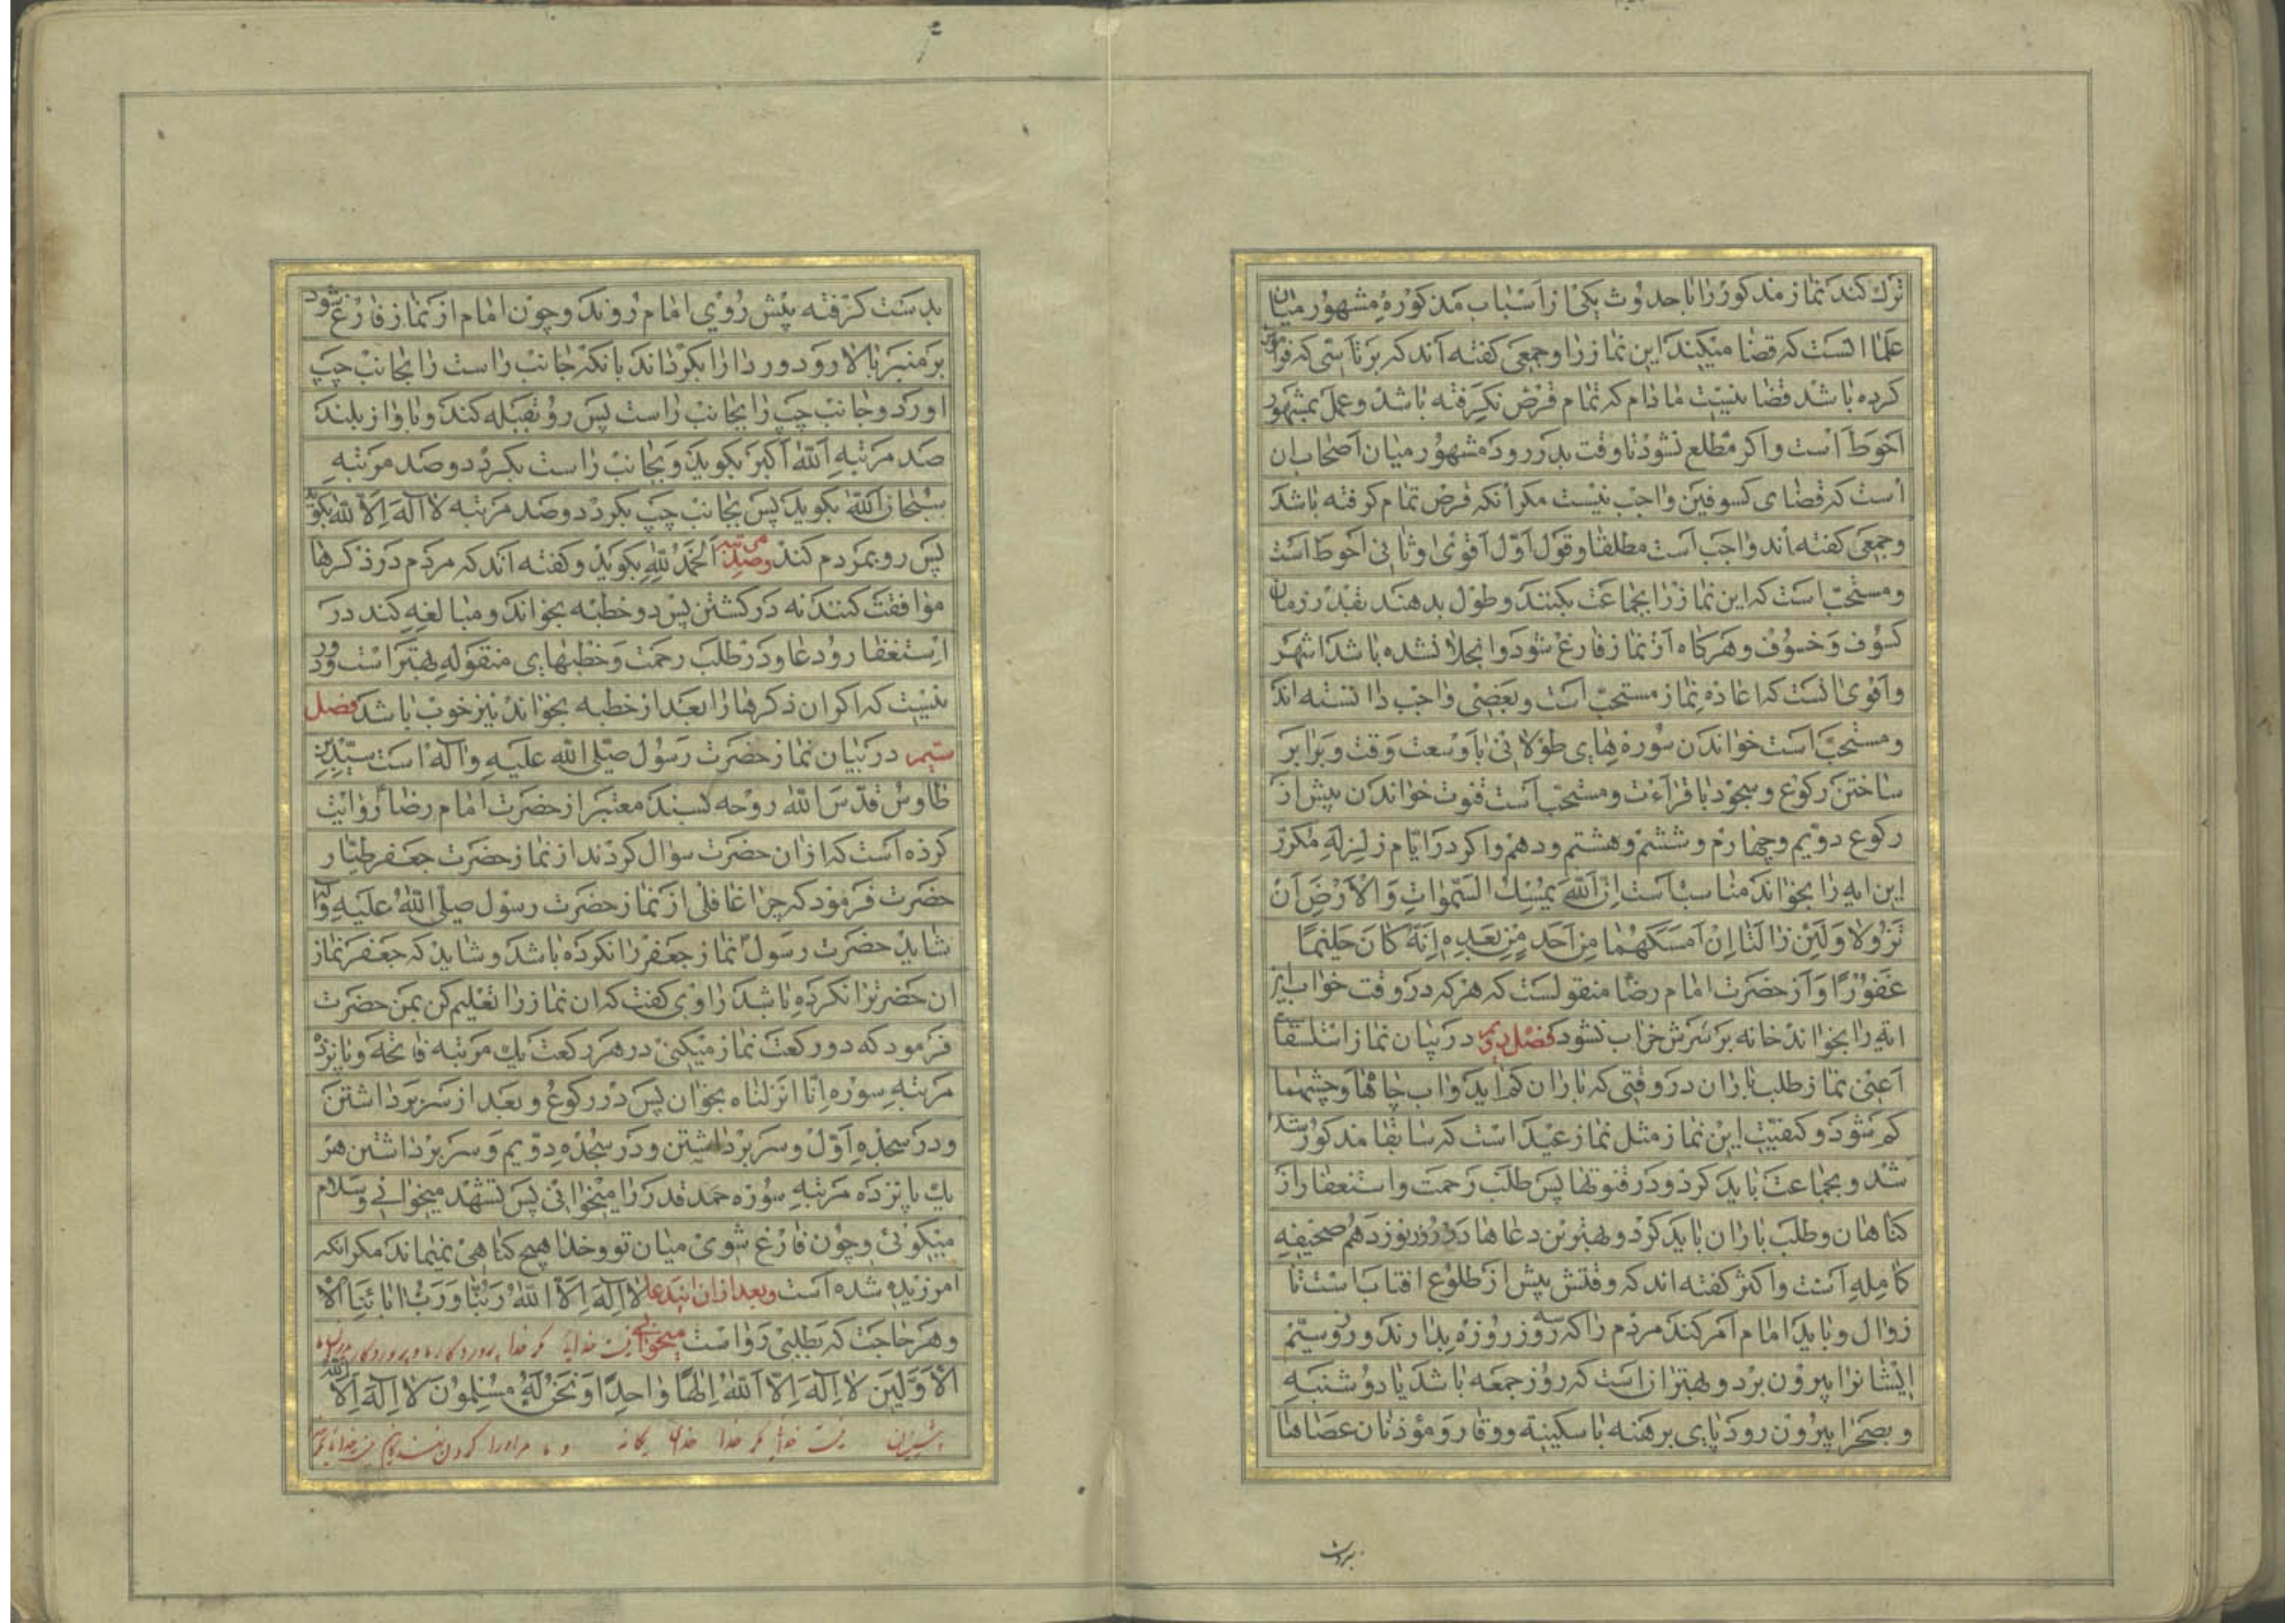 ترک کند نماز مذکور را با حدوث یکی از اسباب مذکورهٔ مشهور میان
علما انست که قضا میکند این نماز را و جمعی کفته اند که بر ناسی که فراموش
کرده باشد قضا نیست مادام که تمام قرص نکرفته باشد و عمل بمشهور
احوط است و اکر مطلع نشود تا وقت بدر رود مشهور میان اصحاب ان
است که قضای کسوفین واجب نیست مکر انکه قرص تمام کرفته باشد
و جمعی کفته اند واجب است مطلقا و قول اول اقوی و ثانی احوط است
و مستحب است که این نماز را بجماعت بکنند و طول بدهند بقدر زمان
کسوف و خسوف و هرکاه از نماز فارغ شود و انجلا نشده باشد اشهر
و اقوی انست که اعاده نماز مستحب است و بعضی واجب دانسته اند
و مستحب است خواندن سوره های طولانی با وسعت وقت و برابر
ساختن رکوع و سجود با قراءت و مستحب است قنوت خواندن پیش از
رکوع دویم و چهارم و ششم و هشتم و دهم و اکر در ایام زلزله مکرر
این ایه را بخواند مناسب است اِنَّ اللهَ یُمْسِكُ السَّمٰواتِ وَالْاَرْضَ اَنْ
تَزُولا وَلَئِنْ زالَتا اِنْ اَمْسَكَهُما مِنْ اَحَدٍ مِنْ بَعْدِهِ اِنَّهُ كانَ حَلیمًا
غَفُورًا و از حضرت امام رضا منقولست که هر که در وقت خواب این
ایه را بخواند خانه بر سرش خراب نشود فصل دویم در بیان نماز استسقاء
اعنی نماز طلب باران در وقتی که باران کم اید و اب چاهها و چشمها
کم شود و کیفیت این نماز مثل نماز عید است که سابقا مذکور شد
شد و بجماعت باید کرد و در قنوتها پس طلب رحمت و استغفار از
کناهان و طلب باران باید کرد و بهترین دعاها در روز نوزدهم صحیفه
کامله است و اکثر کفته اند که وقتش پیش از طلوع افتاب است تا
زوال و باید امام امر کند مردم را که سه روز روزه بدارند و روز سیم
ایشانرا بیرون برد و بهتر ان است که روز جمعه باشد یا دوشنبه
و بصحرا بیرون رود پای برهنه با سکینه و وقار و مؤذنان عصاها
بدست کرفته پیش روی امام روند و چون امام از نماز فارغ شود
بر منبر بالا رود و ردا را بکرداند بانکه جانب راست را بجانب چپ
اورد و جانب چپ را بجانب راست پس رو بقبله کند و باواز بلند
صد مرتبه الله اکبر بکوید و بجانب راست بکردد و صد مرتبه
سبحان الله بکوید پس بجانب چپ بکردد و صد مرتبه لا اله الا الله بکوید
پس رو بمردم کند و صد مرتبه الحمد لله بکوید و کفته اند که مردم در ذکرها
موافقت کنند نه در کشتن پس دو خطبه بخواند و مبالغه کند در
استغفار و دعا و در طلب رحمت و خطبهای منقوله بهتر است و دور
نیست که اکر ان ذکرها را بعد از خطبه بخواند نیز خوب باشد فصل
سیم در بیان نماز حضرت رسول صلی الله علیه و اله است سید بن
طاوس قدس الله روحه بسند معتبر از حضرت امام رضا روایت
کرده است که از ان حضرت سؤال کردند از نماز حضرت جعفر طیار
حضرت فرمود که چرا غافلی از نماز حضرت رسول صلی الله علیه و اله
شاید حضرت رسول نماز جعفر را نکرده باشد و شاید که جعفر نماز
ان حضرترا نکرده باشد راوی کفت که ان نماز را تعلیم کن بمن حضرت
فرمود که دو رکعت نماز میکنی در هر رکعت یك مرتبه فاتحه و پانزده
مرتبه سوره انا انزلناه بخوان پس در رکوع و بعد از سر برداشتن
و در سجده اول و سر برداشتن و در سجده دویم و سر برداشتن هر
یك پانزده مرتبه سوره حمد قدر را میخوانی پس تشهد میخوانی و سلام
میکوئی و چون فارغ شوی میان تو و خدا هیچ کناهی نمیماند مکر انکه
امرزیده شده است و بعد از ان این دعا لا اِلٰهَ اِلَّا اللهُ رَبُّنا وَرَبُّ ابائِنَا الْا
و هر حاجت که بطلبی رواست میخوانی نیست خدایی مکر خدا پروردکار ما و پروردکار پدران ما
الْاَوَّلینَ لا اِلٰهَ اِلَّا اللهُ اِلٰهًا واحِدًا وَنَحْنُ لَهُ مُسْلِمُونَ لا اِلٰهَ اِلَّا الله
پیشینیان نیست خدایی مکر خدا خدای یکانه و ما مر او را کردن نهندکانیم نیست خدایی مکر